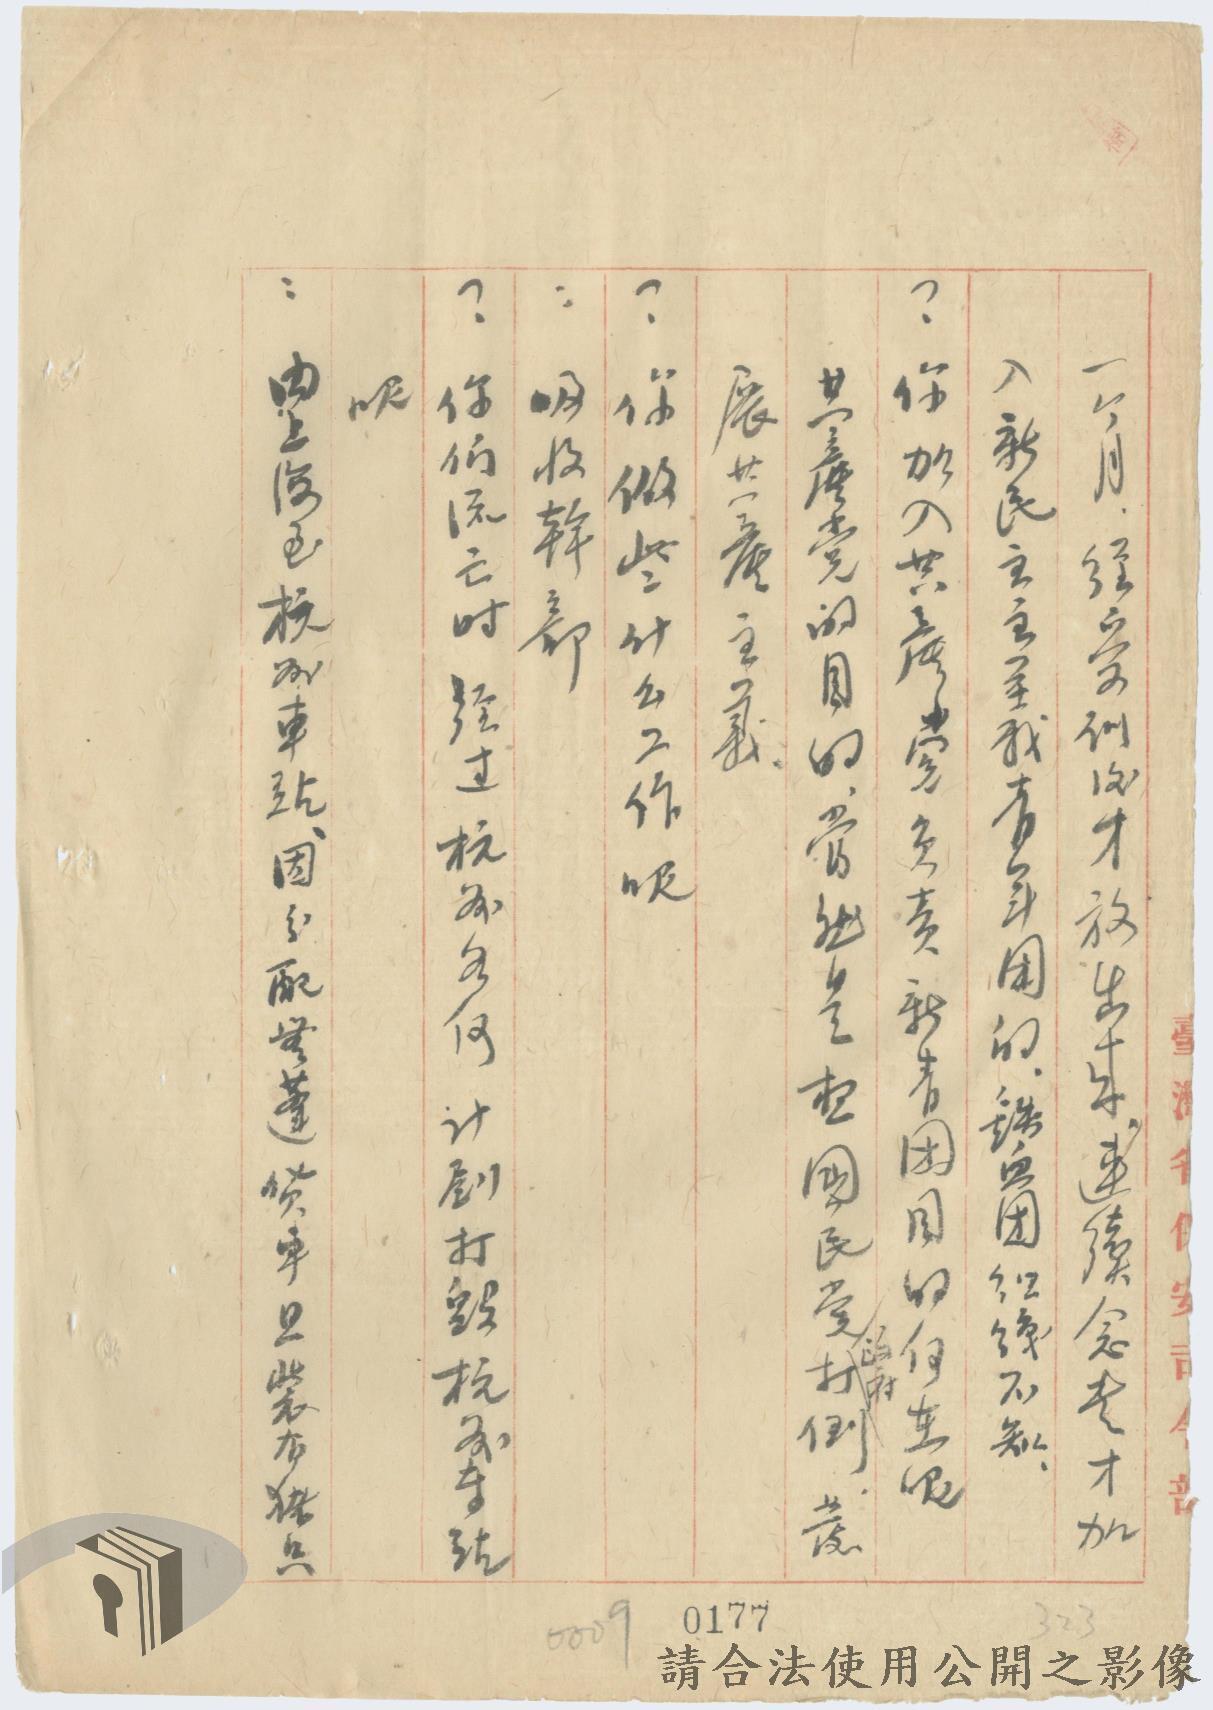 一个月、經受訓後才放出來、連續念書才加
入新民主主義青年团的、鐵血团組織不知、
？、你加入共產党負責新青団目的何在呢
共產党的目的、當然是想國民党政府打倒、發
展共產主義、
？、你做些什么工作呢
：吸收幹部
？、你们流亡时經过杭州为何計劃打毀杭州車站
呢
：由上海至杭州車站、因分配無蓬貨車且裝有猪
臺灣省保安司令部
0009
0177
323
請合法使用公開之影像